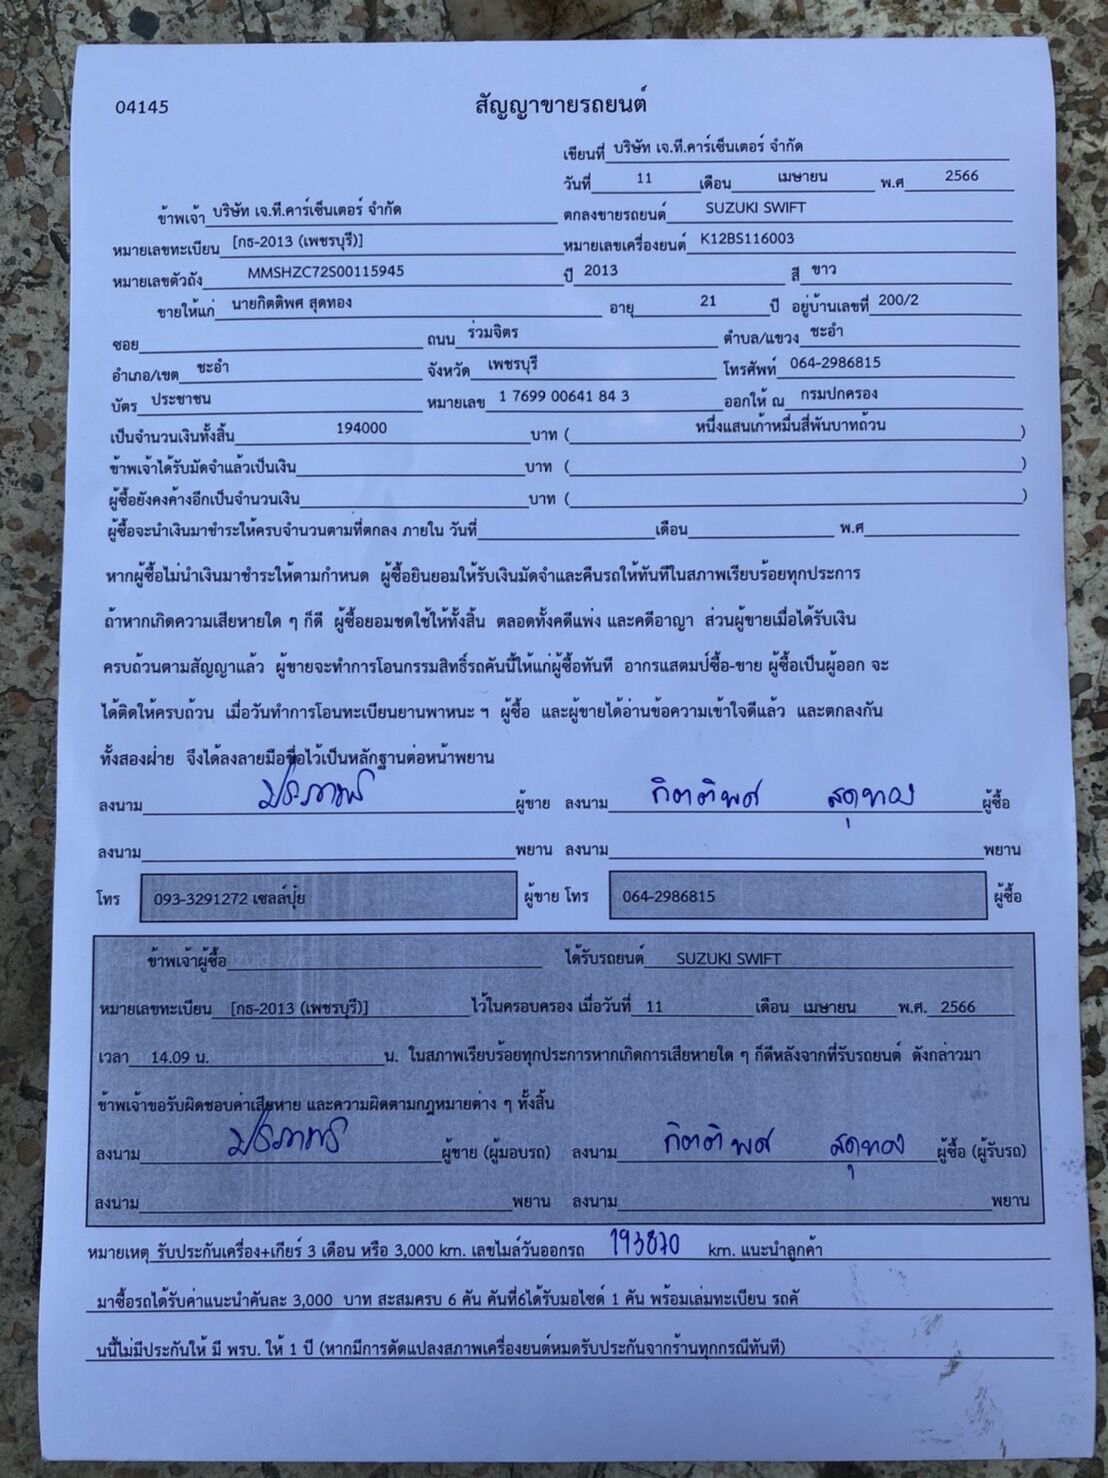 04145
สัญญาขายรถยนต์
เขียนที่ บริษัท เจ.ที.คาร์เซ็นเตอร์ จำกัด
วันที่ 11 เดือน เมษายน พ.ศ 2566
ข้าพเจ้า บริษัท เจ.ที.คาร์เซ็นเตอร์ จำกัด ตกลงขายรถยนต์ SUZUKI SWIFT
หมายเลขทะเบียน [กธ-2013 (เพชรบุรี)] หมายเลขเครื่องยนต์ K12BS116003
หมายเลขตัวถัง MMSHZC72S00115945 ปี 2013 สี ขาว
ขายให้แก่ นายกิตติพศ สุดทอง อายุ 21 ปี อยู่บ้านเลขที่ 200/2
ซอย ถนน ร่วมจิตร ตำบล/แขวง ชะอำ
อำเภอ/เขต ชะอำ จังหวัด เพชรบุรี โทรศัพท์ 064-2986815
บัตร ประชาชน หมายเลข 1 7699 00641 84 3 ออกให้ ณ กรมปกครอง
เป็นจำนวนเงินทั้งสิ้น 194000 บาท ( หนึ่งแสนเก้าหมื่นสี่พันบาทถ้วน )
ข้าพเจ้าได้รับมัดจำแล้วเป็นเงิน บาท ( )
ผู้ซื้อยังคงค้างอีกเป็นจำนวนเงิน บาท ( )
ผู้ซื้อจะนำเงินมาชำระให้ครบจำนวนตามที่ตกลง ภายใน วันที่ เดือน พ.ศ
หากผู้ซื้อไม่นำเงินมาชำระให้ตามกำหนด ผู้ซื้อยินยอมให้รับเงินมัดจำและคืนรถให้ทันทีในสภาพเรียบร้อยทุกประการ
ถ้าหากเกิดความเสียหายใด ๆ ก็ดี ผู้ซื้อยอมชดใช้ให้ทั้งสิ้น ตลอดทั้งคดีแพ่ง และคดีอาญา ส่วนผู้ขายเมื่อได้รับเงิน
ครบถ้วนตามสัญญาแล้ว ผู้ขายจะทำการโอนกรรมสิทธิ์รถคันนี้ให้แก่ผู้ซื้อทันที อากรแสตมป์ซื้อ-ขาย ผู้ซื้อเป็นผู้ออก จะ
ได้ติดให้ครบถ้วน เมื่อวันทำการโอนทะเบียนยานพาหนะ ฯ ผู้ซื้อ และผู้ขายได้อ่านข้อความเข้าใจดีแล้ว และตกลงกัน
ทั้งสองฝ่าย จึงได้ลงลายมือชื่อไว้เป็นหลักฐานต่อหน้าพยาน
ลงนาม ผู้ขาย ลงนาม กิตติพศ สุดทอง ผู้ซื้อ
ลงนาม พยาน ลงนาม พยาน
โทร 093-3291272 เซลล์ปุ๋ย ผู้ขาย โทร 064-2986815 ผู้ซื้อ
ข้าพเจ้าผู้ซื้อ ได้รับรถยนต์ SUZUKI SWIFT
หมายเลขทะเบียน [กธ-2013 (เพชรบุรี)] ไว้ในครอบครอง เมื่อวันที่ 11 เดือน เมษายน พ.ศ. 2566
เวลา 14.09 น. น. ในสภาพเรียบร้อยทุกประการหากเกิดการเสียหายใด ๆ ก็ดีหลังจากที่รับรถยนต์ ดังกล่าวมา
ข้าพเจ้าขอรับผิดชอบค่าเสียหาย และความผิดตามกฎหมายต่าง ๆ ทั้งสิ้น
ลงนาม ผู้ขาย (ผู้มอบรถ) ลงนาม กิตติพศ สุดทอง ผู้ซื้อ (ผู้รับรถ)
ลงนาม พยาน ลงนาม พยาน
หมายเหตุ รับประกันเครื่อง+เกียร์ 3 เดือน หรือ 3,000 km. เลขไมล์วันออกรถ 193870 km. แนะนำลูกค้า
มาซื้อรถได้รับค่าแนะนำคันละ 3,000 บาท สะสมครบ 6 คัน คันที่6ได้รับมอไซด์ 1 คัน พร้อมเล่มทะเบียน รถคั
นนี้ไม่มีประกันให้ มี พรบ. ให้ 1 ปี (หากมีการดัดแปลงสภาพเครื่องยนต์หมดรับประกันจากร้านทุกกรณีทันที)